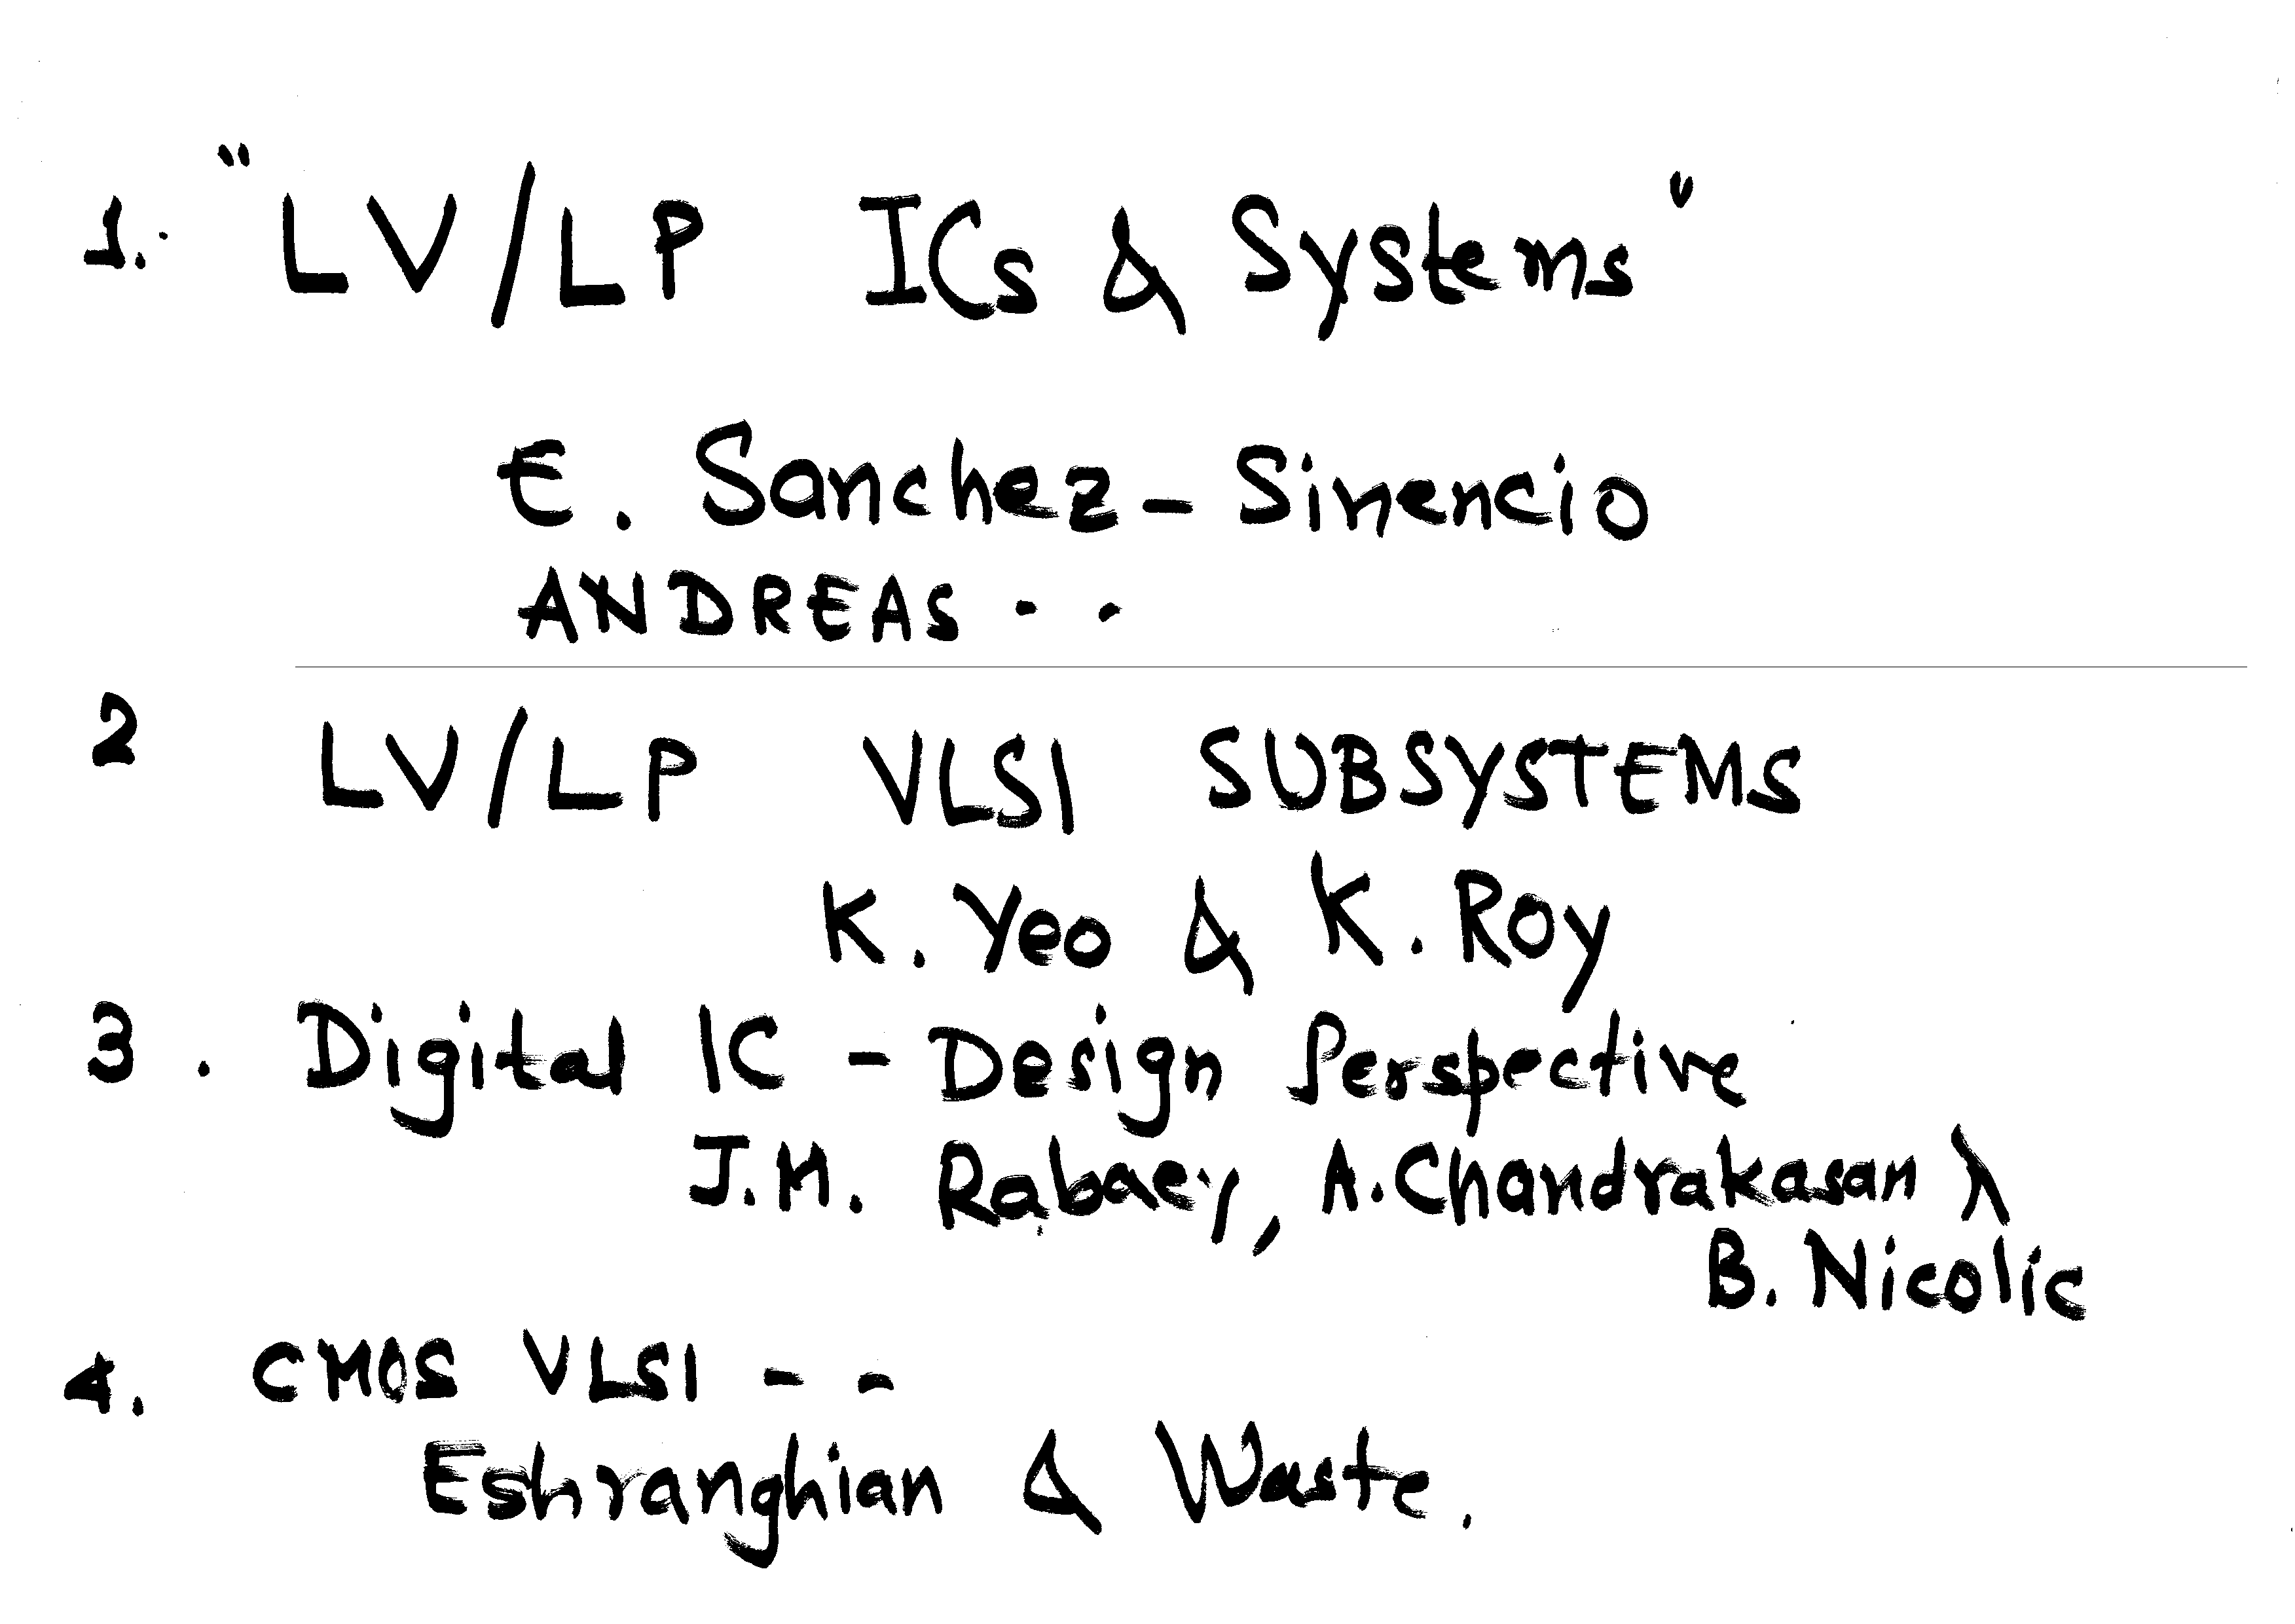 1. "LV/LP ICs & Systems"
E. Sanchez - Sinencio
ANDREAS . .
2 LV/LP VLSI SUBSYSTEMS
K. Yeo & K. Roy
3. Digital IC - Design Perspective
J.M. Rabaey, A. Chandrakasan &
B. Nicolic
4. CMOS VLSI - -
Eshranghian & Waste.